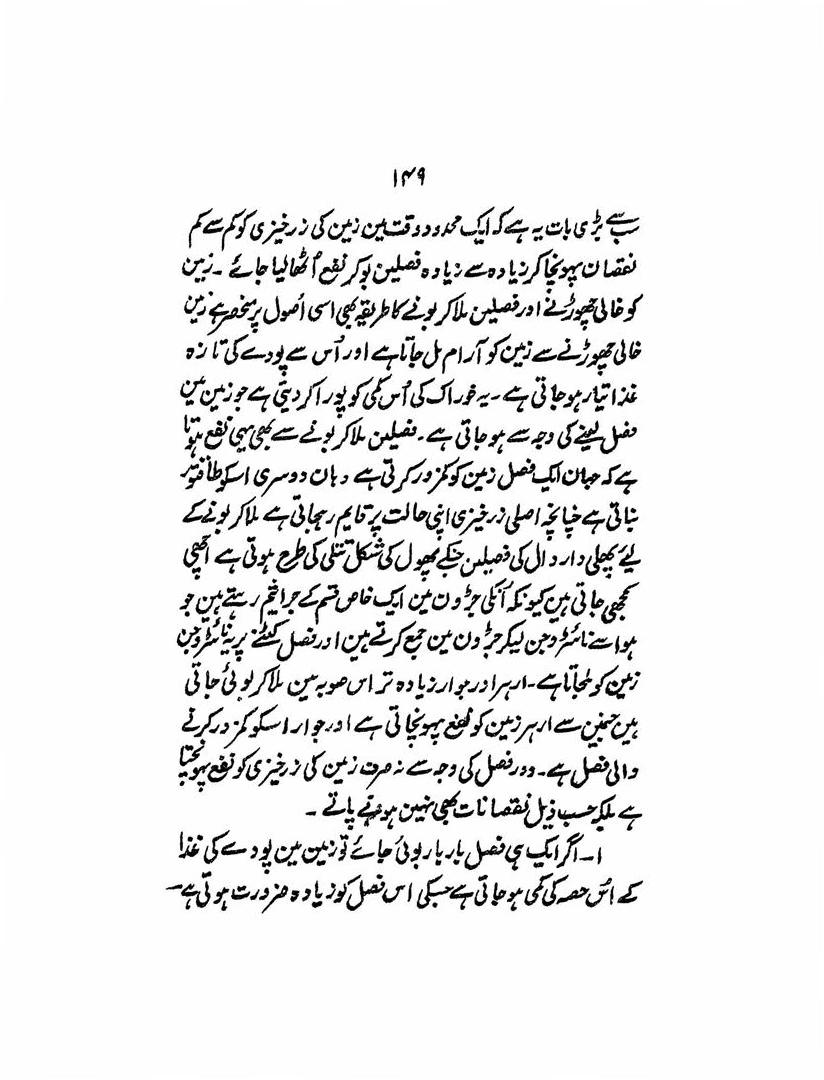 ۱۴۹
سب سے بڑی بات یہ ہے کہ ایک محدود وقت مین زمین کی زرخیزی کو کم سے کم
نقصان پہونچا کر زیادہ سے زیادہ فصلین بو کر نفع اُٹھا لیا جائے ۔ زمین
کو خالی چھوڑنے اور فصلین ملا کر بونے کا طریقہ بھی اسی اُصول پر منحصر ہے زمین
خالی چھوڑنے سے زمین کو آرام مل جاتا ہے اور اُس سے پودے کی تازہ
غذا تیار ہو جاتی ہے ۔ یہ خوراک کی اُس کمی کو پورا کر دیتی ہے جو زمین مین
فصل لینے کی وجہ سے ہو جاتی ہے ۔ فصلین ملا کر بونے سے بھی یہی نفع ہوتا
ہے کہ جہان ایک فصل زمین کو کمزور کرتی ہے وہان دوسری اسکو طاقتور
بناتی ہے چنانچہ اصلی زرخیزی اپنی حالت پر قایم رہجاتی ہے ملا کر بونے کے
لیے پھلی دار دال کی فصلین جنکے پھول کی شکل تتلی کی طرح ہوتی ہے اچھی
سمجھی جاتی ہین کیونکہ اُنکی جڑون مین ایک خاص قسم کے جراثیم رہتے ہین جو
ہوا سے نائٹروجن لیکر جڑون مین جمع کرتے ہین اور فصل کٹنے پر یہ نائٹروجن
زمین کو ملجاتا ہے ۔ ارہر اور جوار زیادہ تر اس صوبہ مین ملا کر بوئی جاتی
ہین جنمین سے ارہر زمین کو نفع پہونچاتی ہے اور جوار اسکو کمزور کرنے
والی فصل ہے ۔ دور فصل کی وجہ سے نہ صرف زمین کی زرخیزی کو نفع پہونچتا
ہے بلکہ حسب ذیل نقصانات بھی نہین ہونے پاتے ۔
۱ ۔ اگر ایک ہی فصل بار بار بوئی جائے تو زمین مین پودے کی غذا
کے اُس حصہ کی کمی ہو جاتی ہے جسکی اس فصل کو زیادہ ضرورت ہوتی ہے ۔